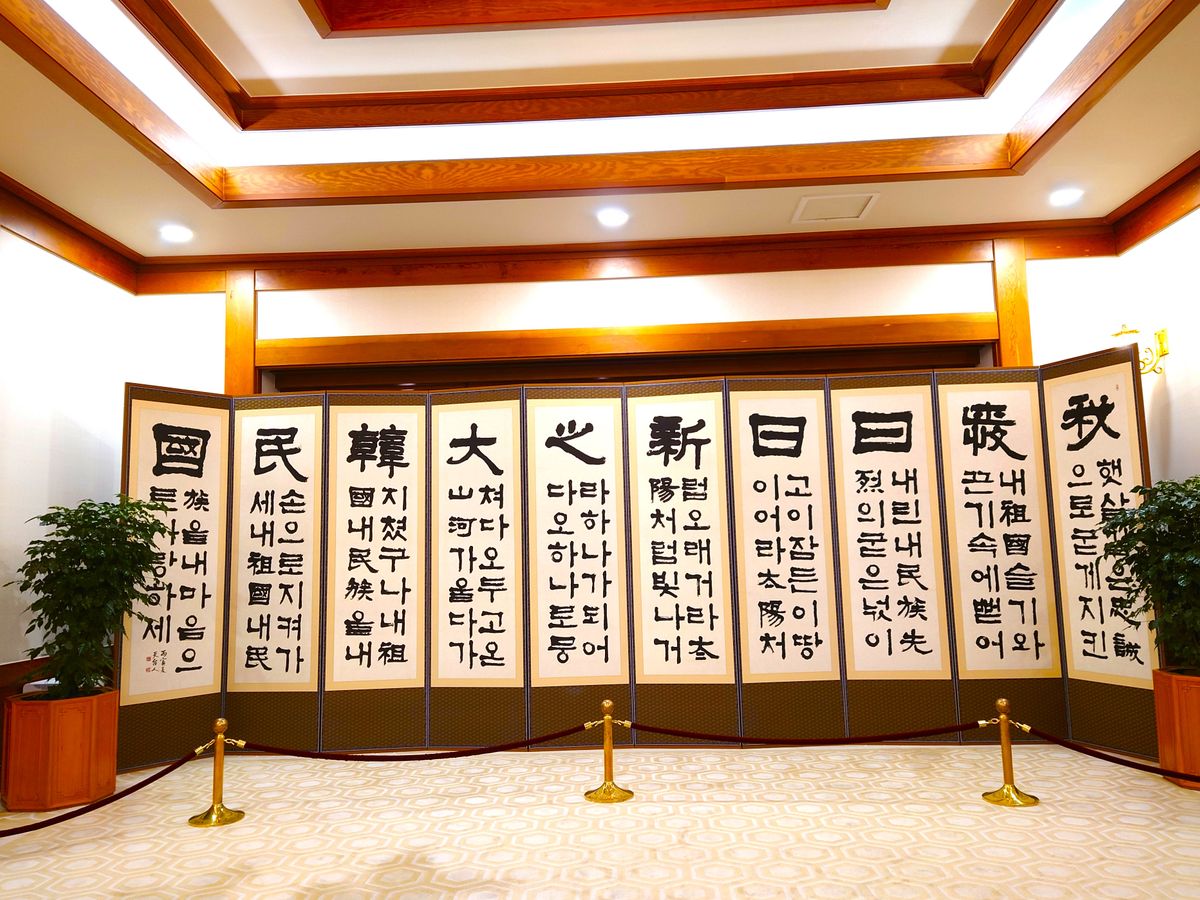 秋
햇살은忠誠
으로굳게지킨
내祖國슬기와
끈기속에뻗어
日
내린내民族先
烈의굳은넋이
日
고이잠든이땅
이어라太陽처
新
럼오래거라太
陽처럼빛나거
心
라하나가되어
다오하나로뭉
大
쳐다오두고온
山河가을다가
韓
지쳤구나내祖
國내民族을내
民
손으로지켜가
세내祖國내民
國
族을내마음으
로사랑하세